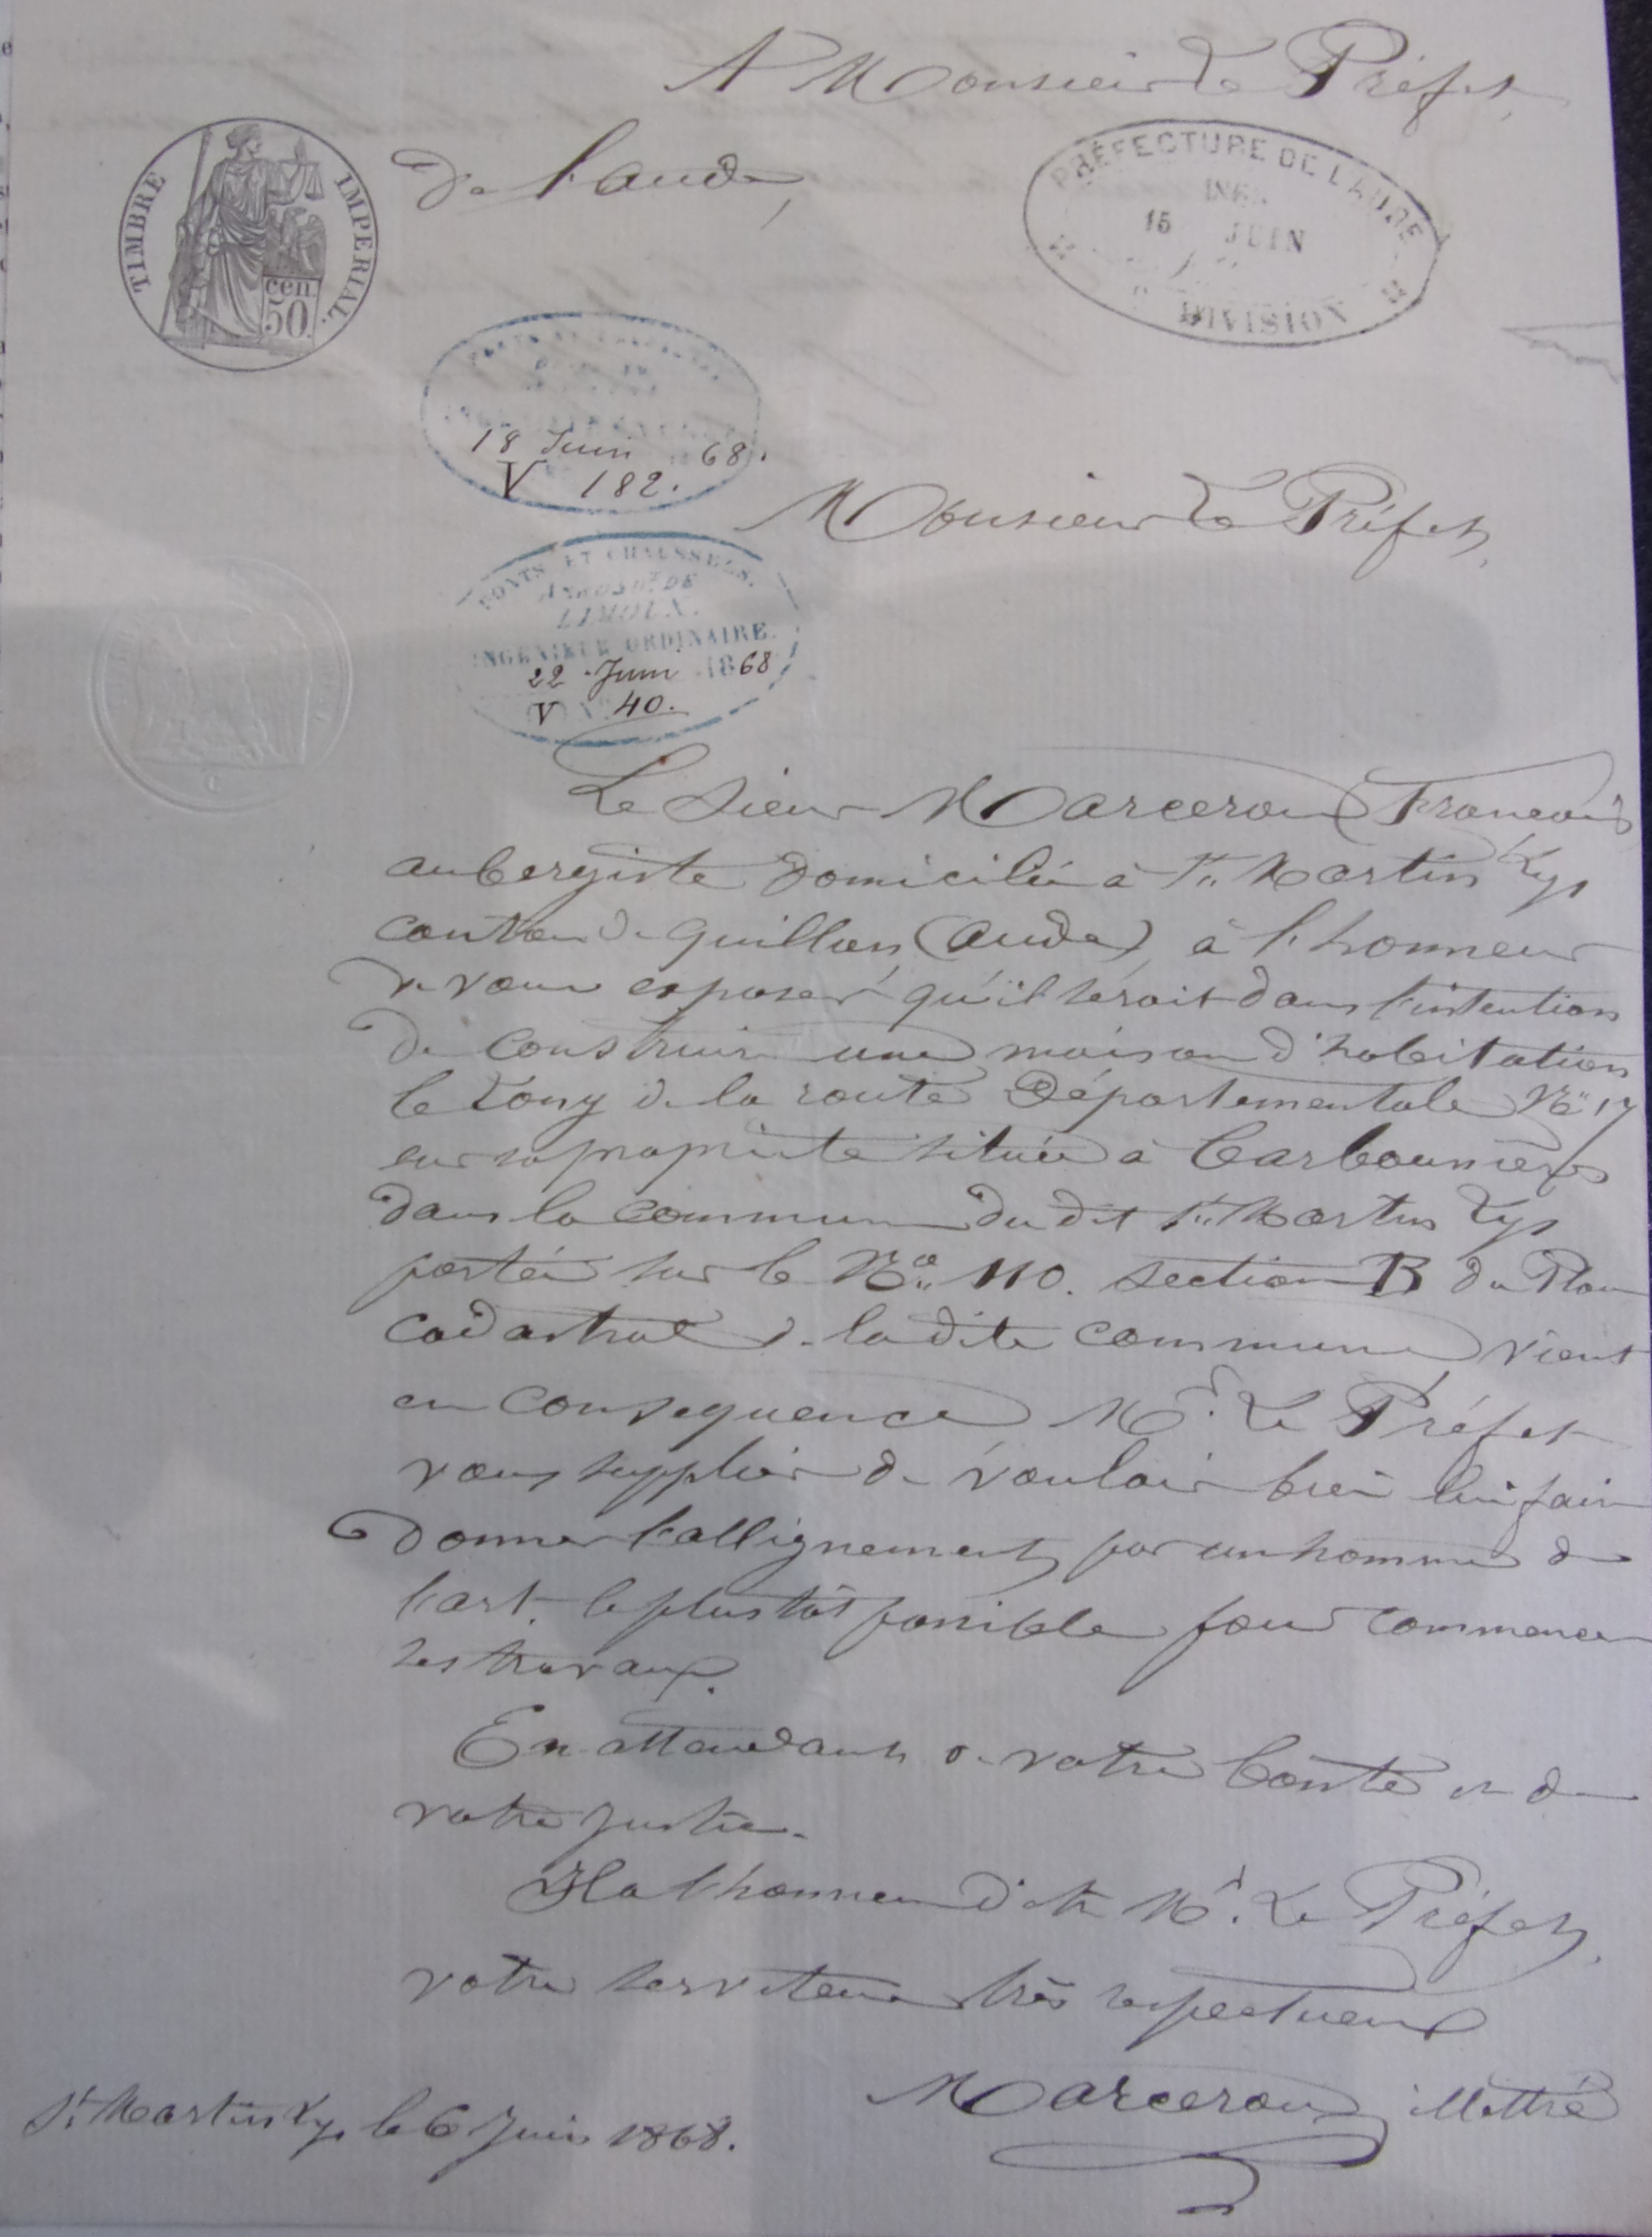 A Monsieur Le Préfet
de l'aude,
TIMBRE IMPERIAL.
cen.
50
PRÉFECTURE DE L'AUDE
15 JUIN
DIVISION
18 Juin 68.
V 182.
Monsieur Le Préfet,
PONTS ET CHAUSSÉES.
ARROND.T DE
LIMOUX.
INGÉNIEUR ORDINAIRE.
22 Juin 1868
V N° 40.
Le Sieur Marceron François
aubergiste domicilié à St Martin Lys
canton de quillan (aude) à l'honneur
de vous exposer qu'il serait dans l'intention
de construire une maison d'habitation
le Long de la route Départementale No 17
sur sa propriété située à Carbounières
dans la commune du dit St Martin Lys
portée sur le No 110. section B du Plan
cadastral de la dite commune vient
en consequence Mr. Le Préfet
vous supplier de vouloir bien lui faire
donner l'allignement par un homme de
l'art. le plus tôt possible pour commencer
ses travaux.
En attendant de votre bonté et de
votre justice.
Il a l'honneur d'etre Mr. Le Préfet,
votre serviteur très respectueux
Marceron illettré
St Martin Lys le 6 Juin 1868.